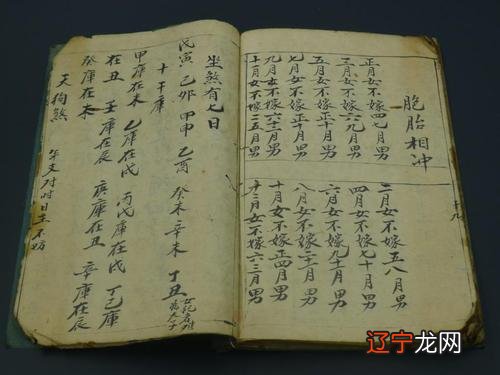 胞胎相冲
正月女不嫁四七月男
三月女不嫁六九月男
五月女不嫁月男
七月女不嫁正十月男
九月女不嫁月男
十一月女不嫁二五月男
二月女不嫁五八月男
四月女不嫁七十月男
六月女不嫁九十月男
八月女不嫁月男
十月女不嫁正四月男
十二月女不嫁六三月男
十九
坐煞有七日
戊寅 己卯 甲申 乙酉 癸未 辛未 丁丑
十干庫
甲庫在未 乙庫在戌 丙戊庫在戌 丁己庫
在丑 壬庫在辰 庚庫在丑 辛庫在辰
癸庫在未
天狗煞 年支对时日主不妨
辽宁龙网